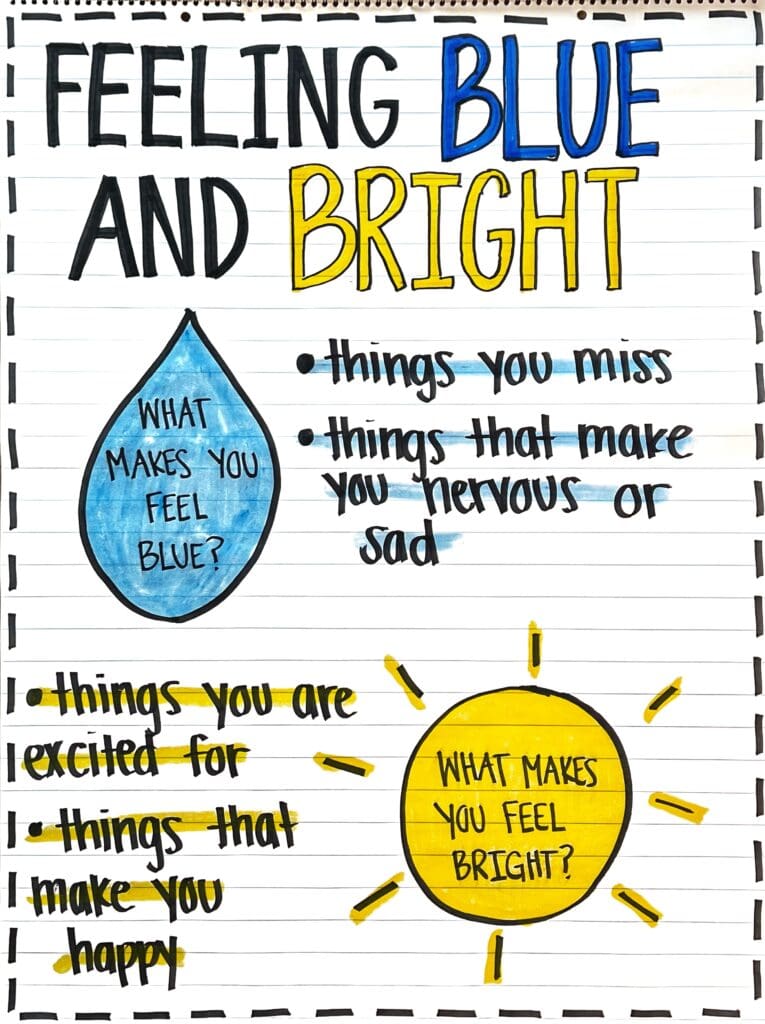 FEELING BLUE
AND BRIGHT
WHAT
MAKES YOU
FEEL
BLUE?
• things you miss
• things that make
you nervous or
sad
• things you are
excited for
• things that
make you
happy
WHAT MAKES
YOU FEEL
BRIGHT?